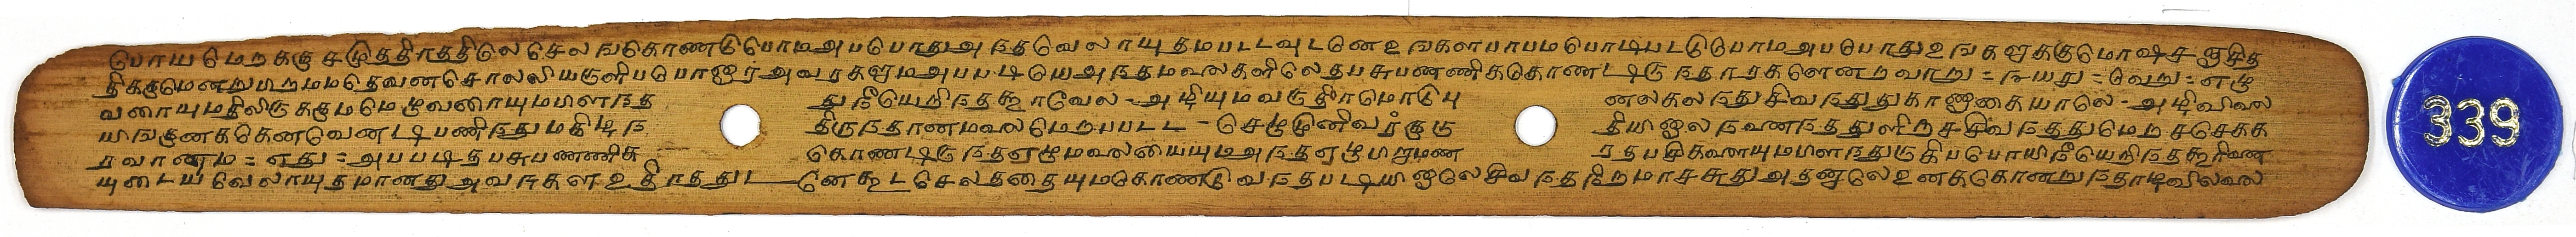 போய மெறகுகு சமுத்திரத்திலே செல ஙகொணடுபோம அபபொது அநதவேலாயுதமபடடவுடனே உஙகளபாபம பொடிபடடுபொம அபபொது உஙகளுககு மொஷ சஞசித
திககுமெனறு பிறமமதெவன சொலலியருளிபபொனூர அவரகளும அபபடியே அநதமலைகளிலே தபசுபணணிககொணடிருநதாரகளெனறவாறு = உயரு = வேறு = எழு
வரையுமதிலிருககுமமெழுவரையும பிளநத துநீயெறிநதகூரவேல - அழியுமவகுதிரமொடுபு னலகலநது சிவநது துகாணுகையாலே - அழிவிலை
யிஙகுனககெனவெணடி பணிநது மகிழந திருநதானமலை மெறபபடட - செழுமுனிவரககு தியினுல நவணநத துளிறசசிவநதது மெறசசெகக
ரவாணம = எது = அபபடி தபசுபணணிக கொணடிருநத ஏழுமலையையும அநத ஏழுபிறமண ரதபசிகளையும பிளநது குகிபபொயி நீயெறிநத கூரிலண
யுடைய வேலாயுதமானது அவரகள உதிரததுடனே கூட செலததையும கொணடுவநதபடியினுலே சிவநதநிறமாசசுது அதனுலே உனககொனறுநதாழவிலலை
339